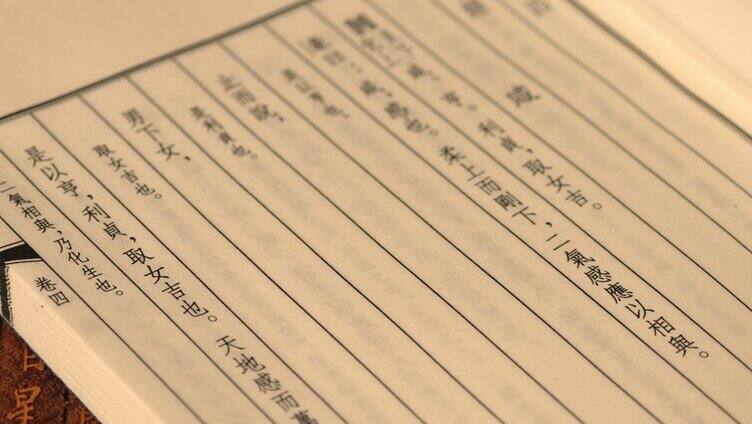 咸
咸，亨。利貞，取女吉。
彖曰：咸，感也。柔上而剛下，二氣感應以相與。
是以亨也。
止而說，
是利貞也。
男下女，
取女吉也。
是以亨，利貞，取女吉也。天地感而萬
二氣相與，乃化生也。
卷四